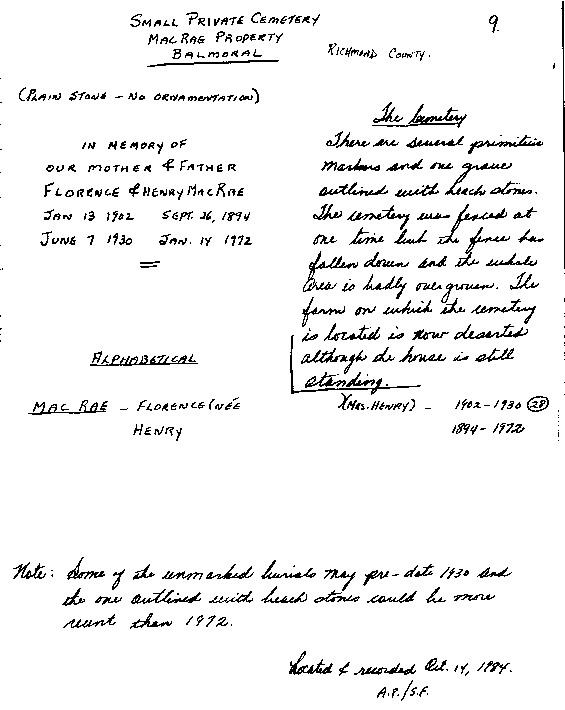 9.
SMALL PRIVATE CEMETERY
MACRAE PROPERTY
BALMORAL
RICHMOND COUNTY.
(PLAIN STONE – NO ORNAMENTATION)
IN MEMORY OF
OUR MOTHER & FATHER
FLORENCE & HENRY MACRAE
JAN 13 1902 SEPT. 26, 1894
JUNE 7 1930 JAN. 14 1972
The Cemetery
There are several primitive
markers and one grave
outlined with beach stones.
The cemetery was fenced at
one time but the fence has
fallen down and the whole
area is badly overgrown. The
farm on which the cemetery
is located is now deserted
although the house is still
standing.
ALPHABETICAL
MACRAE – FLORENCE (NÉE ) (MRS. HENRY) – 1902–1930 (28)
HENRY 1894–1972
Note: Some of the unmarked burials may pre-date 1930 and
the one outlined with beach stones could be more
recent than 1972.
Located & recorded Oct. 14, 1984.
A.P./S.F.